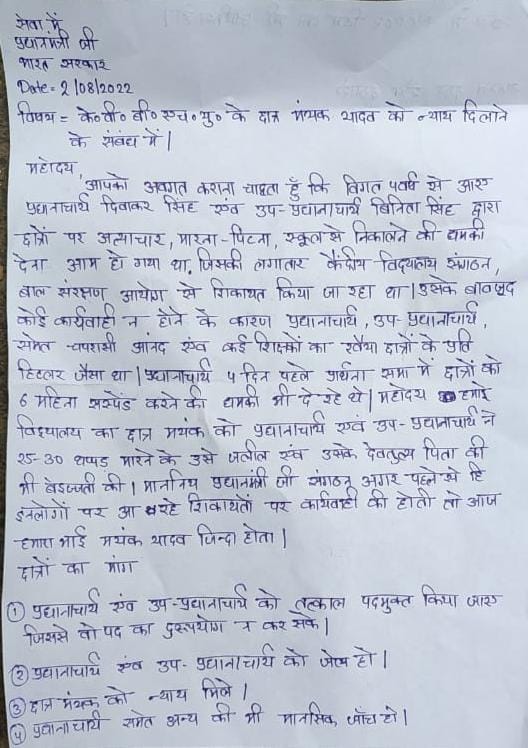 सेवा में
प्रधानमंत्री जी
भारत सरकार
Date = 2/08/2022
विषय = के०वी० बी०एच०यू० के छात्र मंयक यादव को न्याय दिलाने
के संबंध में।
महोदय,
आपको अवगत कराना चाहता हूँ कि विगत 4वर्ष से आए
प्रधानाचार्य दिवाकर सिंह एंव उप-प्रधानाचार्य बिनिता सिंह द्वारा
छात्रों पर अत्याचार, मारना-पिटना, स्कूल से निकालने की धमकी
देना आम हो गया था, जिसकी लगातार केंद्रीय विद्यालय संगठन,
बाल संरक्षण आयोग से शिकायत किया जा रहा था। इसके बावजूद
कोई कार्यवाही न होने के कारण प्रधानाचार्य, उप-प्रधानाचार्य,
समेत चपरासी आनंद एंव कई शिक्षकों का रवैया छात्रों के प्रति
हिटलर जैसा था। प्रधानाचार्य 4 दिन पहले प्रार्थना सभा में छात्रों को
6 महिना सस्पेंड करने की धमकी भी दे रहे थे। महोदय हमारे
विद्यालय का छात्र मयंक को प्रधानाचार्य एंव उप-प्रधानाचार्य ने
25-30 थप्पड़ मारने के उसे जलील एंव उसके देवतुल्य पिता की
भी बेइज्जती की। माननिय प्रधानमंत्री जी संगठन अगर पहले से हि
इनलोगों पर आ रहे शिकायतों पर कार्यवाही की होती तो आज
हमारा भाई मयंक यादव जिन्दा होता।
छात्रों का मांग
① प्रधानाचार्य एंव उप-प्रधानाचार्य को तत्काल पदमुक्त किया जाए
जिससे वो पद का दुरूपयोग न कर सके।
② प्रधानाचार्य एंव उप-प्रधानाचार्य को जेल हो।
③ छात्र मंयक को न्याय मिले।
④ प्रधानाचार्य समेत अन्य की भी मानसिक जाँच हो।